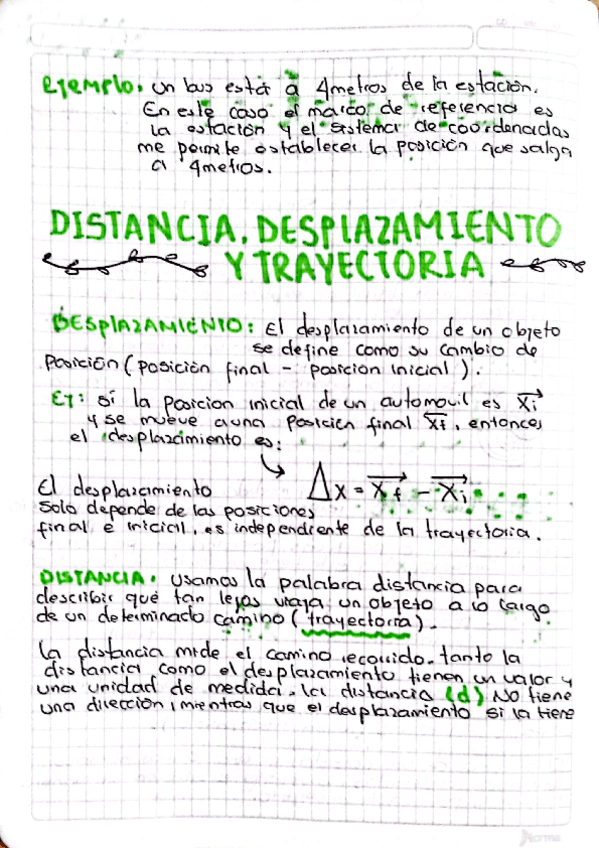 Ejemplo: un bus está a 4 metros de la estación.
En este caso el marco de referencia es
la estación y el sistema de coordenadas
me permite establecer la posición que salga
a 4 metros.
DISTANCIA, DESPLAZAMIENTO
Y TRAYECTORIA
DESPLAZAMIENTO: El desplazamiento de un objeto
se define como su cambio de
posición (posición final - posicion inicial).
EJ: si la posicion inicial de un automovil es Xi
y se mueve a una posición final Xf, entonces
el desplazamiento es:
Δx = Xf - Xi
El desplazamiento
solo depende de las posiciones
final e inicial, es independiente de la trayectoria.
DISTANCIA: usamos la palabra distancia para
describir qué tan lejos viaja un objeto a lo largo
de un determinado camino (trayectoria).
La distancia mide el camino recorrido. tanto la
distancia como el desplazamiento tienen un valor y
una unidad de medida. La distancia (d) NO tiene
una dirección, mientras que el desplazamiento si la tiene
Norma